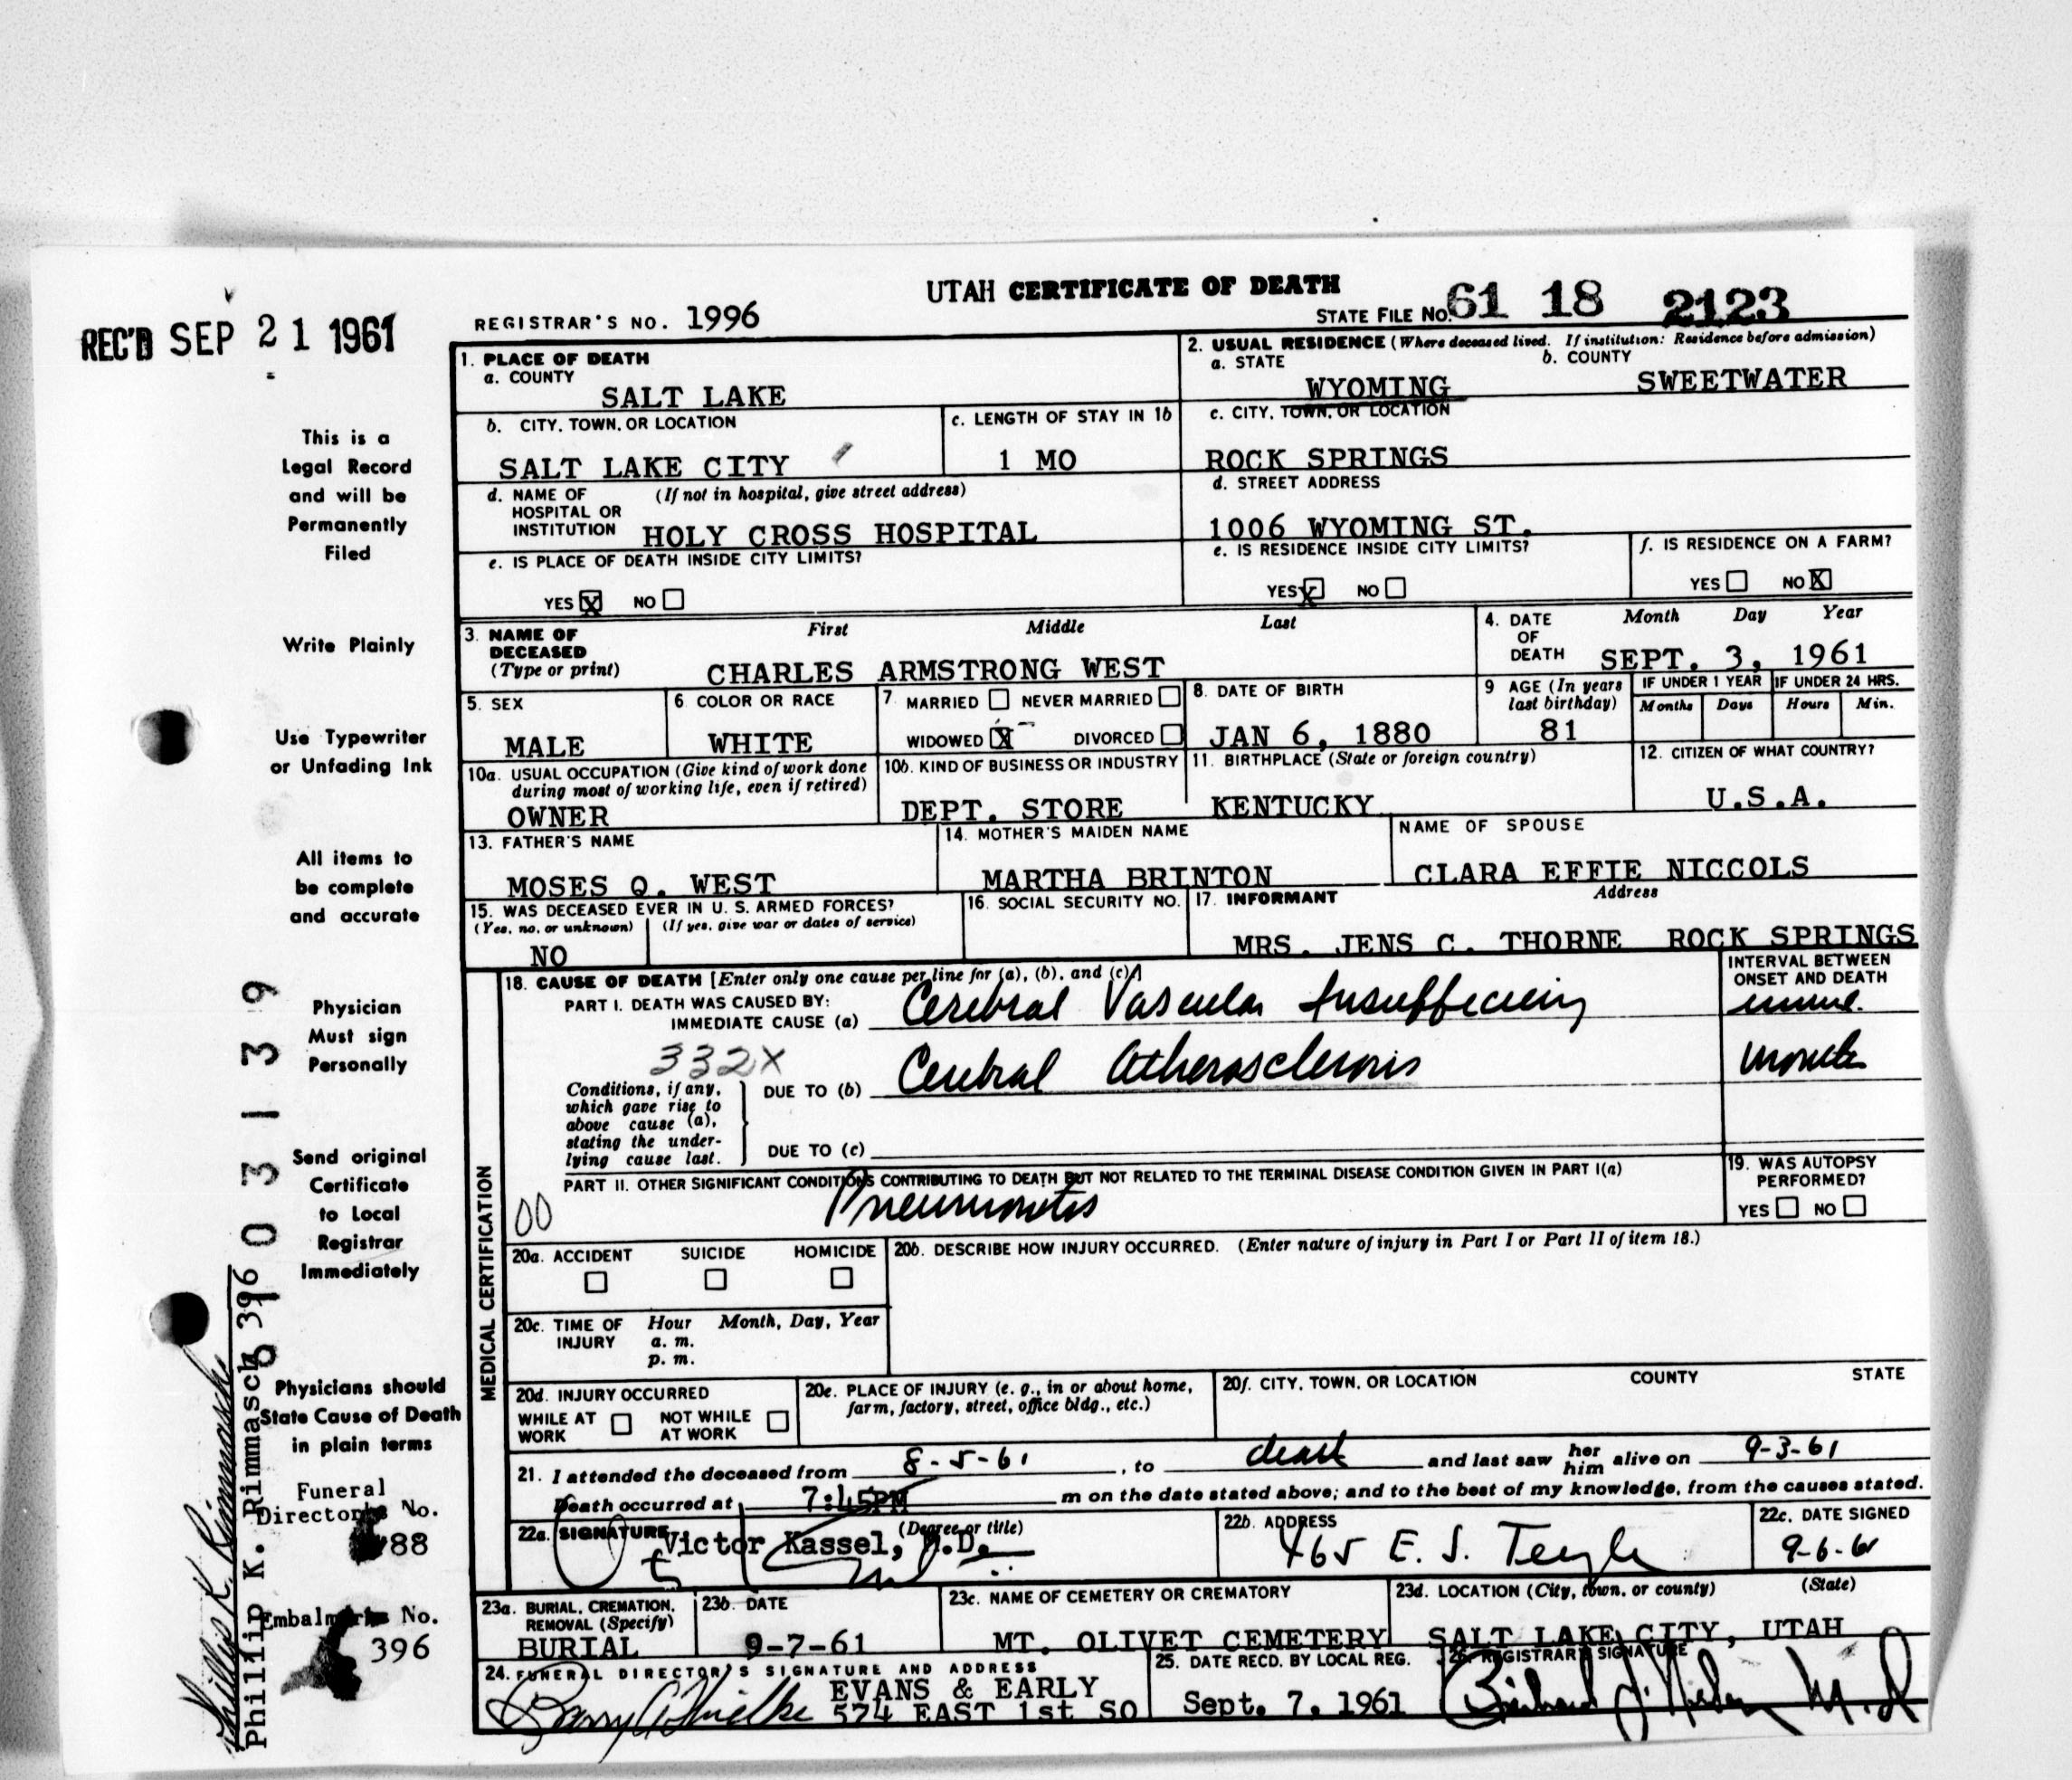 UTAH CERTIFICATE OF DEATH
REC'D SEP 21 1961
REGISTRAR'S NO. 1996
STATE FILE NO. 61 18 2123
1. PLACE OF DEATH
a. COUNTY
SALT LAKE
2. USUAL RESIDENCE (Where deceased lived. If institution: Residence before admission)
a. STATE
WYOMING
b. COUNTY
SWEETWATER
b. CITY, TOWN, OR LOCATION
SALT LAKE CITY
c. LENGTH OF STAY IN 1b
1 MO
c. CITY, TOWN, OR LOCATION
ROCK SPRINGS
d. NAME OF HOSPITAL OR INSTITUTION
(If not in hospital, give street address)
HOLY CROSS HOSPITAL
d. STREET ADDRESS
1006 WYOMING ST.
e. IS PLACE OF DEATH INSIDE CITY LIMITS?
YES X NO
e. IS RESIDENCE INSIDE CITY LIMITS?
YES X NO
f. IS RESIDENCE ON A FARM?
YES NO X
3. NAME OF DECEASED
(Type or print)
First Middle Last
CHARLES ARMSTRONG WEST
4. DATE OF DEATH
Month Day Year
SEPT. 3, 1961
5. SEX
MALE
6 COLOR OR RACE
WHITE
7 MARRIED NEVER MARRIED
WIDOWED X DIVORCED
8. DATE OF BIRTH
JAN 6, 1880
9 AGE (In years last birthday)
81
IF UNDER 1 YEAR
Months Days
IF UNDER 24 HRS.
Hours Min.
10a. USUAL OCCUPATION (Give kind of work done during most of working life, even if retired)
OWNER
10b. KIND OF BUSINESS OR INDUSTRY
DEPT. STORE
11. BIRTHPLACE (State or foreign country)
KENTUCKY
12. CITIZEN OF WHAT COUNTRY?
U.S.A.
13. FATHER'S NAME
MOSES Q. WEST
14. MOTHER'S MAIDEN NAME
MARTHA BRINTON
NAME OF SPOUSE
CLARA EFFIE NICCOLS
15. WAS DECEASED EVER IN U. S. ARMED FORCES?
(Yes, no, or unknown) (If yes, give war or dates of service)
NO
16. SOCIAL SECURITY NO.
17. INFORMANT Address
MRS. JENS C. THORNE ROCK SPRINGS
MEDICAL CERTIFICATION
18. CAUSE OF DEATH [Enter only one cause per line for (a), (b), and (c)]
PART I. DEATH WAS CAUSED BY:
IMMEDIATE CAUSE (a) Cerebral Vascular Insufficiency
INTERVAL BETWEEN ONSET AND DEATH
332X
Conditions, if any, which gave rise to above cause (a), stating the underlying cause last.
DUE TO (b) Cerebral Atherosclerosis
months
DUE TO (c)
PART II. OTHER SIGNIFICANT CONDITIONS CONTRIBUTING TO DEATH BUT NOT RELATED TO THE TERMINAL DISEASE CONDITION GIVEN IN PART I(a)
00
Pneumonitis
19. WAS AUTOPSY PERFORMED?
YES NO
20a. ACCIDENT SUICIDE HOMICIDE
20b. DESCRIBE HOW INJURY OCCURRED. (Enter nature of injury in Part I or Part II of item 18.)
20c. TIME OF INJURY
Hour Month, Day, Year
a. m.
p. m.
20d. INJURY OCCURRED
WHILE AT WORK NOT WHILE AT WORK
20e. PLACE OF INJURY (e. g., in or about home, farm, factory, street, office bldg., etc.)
20f. CITY, TOWN, OR LOCATION COUNTY STATE
21. I attended the deceased from 8-5-61, to death and last saw her him alive on 9-3-61
Death occurred at 7:45PM m on the date stated above; and to the best of my knowledge, from the causes stated.
22a. SIGNATURE (Degree or title)
Victor Kassel, M.D.
22b. ADDRESS
465 E. S. Temple
22c. DATE SIGNED
9-6-61
23a. BURIAL, CREMATION, REMOVAL (Specify)
BURIAL
23b. DATE
9-7-61
23c. NAME OF CEMETERY OR CREMATORY
MT. OLIVET CEMETERY
23d. LOCATION (City, town, or county) (State)
SALT LAKE CITY, UTAH
24. FUNERAL DIRECTOR'S SIGNATURE AND ADDRESS
EVANS & EARLY
574 EAST 1st SO
25. DATE RECD. BY LOCAL REG.
Sept. 7, 1961
26. REGISTRAR'S SIGNATURE
This is a
Legal Record
and will be
Permanently
Filed
Write Plainly
Use Typewriter
or Unfading Ink
All items to
be complete
and accurate
Physician
Must sign
Personally
Send original
Certificate
to Local
Registrar
Immediately
Physicians should
State Cause of Death
in plain terms
Funeral
Director's No.
88
Embalmer's No.
396
Phillip K. Rimmasch
Phillip K. Rimmasch 396
6 1 6 0 3 1 3 9